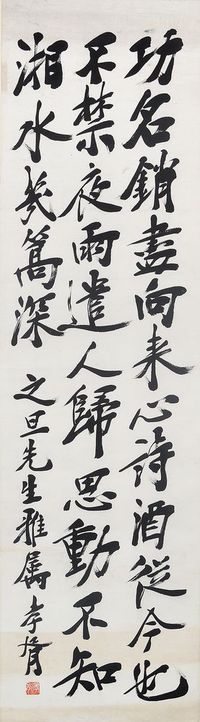 功名銷盡向来心詩酒從今也
不禁夜雨遣人歸思動不知
湘水幾篙深
之旦先生雅屬孝胥